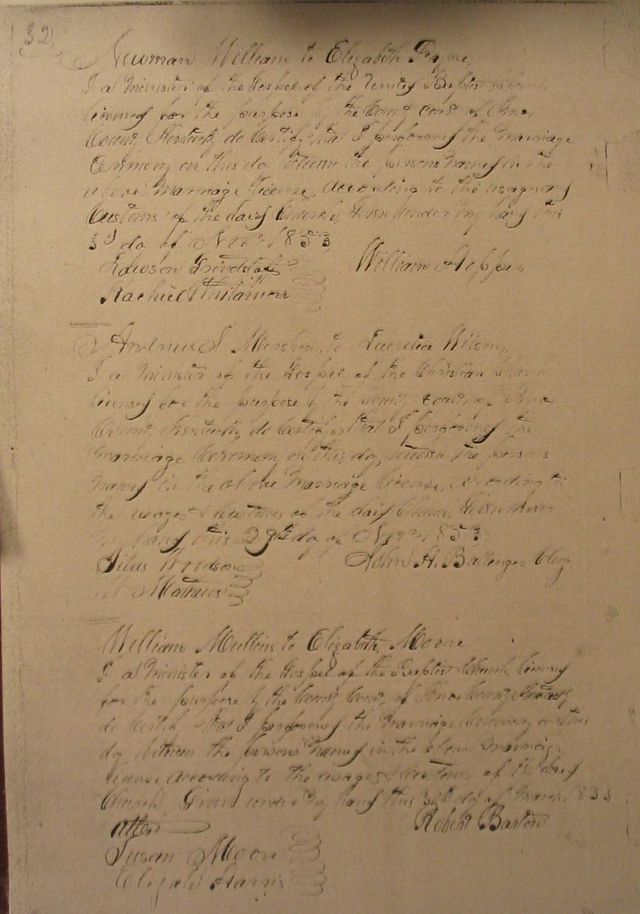 32
Newman William to Elizabeth Payne
I a Minister of the Gospel of the United Baptist Church
licensed for the purpose by the County Court of Knox
County Kentucky do Certify that I performed the Marriage
Ceremony on this day between the persons named in the
above Marriage License according to the usages &
Customs of the said Church Given under my hand this
3d day of Nov 1853
William Hopper
Rachiel Whitamore
Andrew J to Wilson
I a Minister of the Gospel of the Christian Church
licensed for the purpose by the County Court of Knox
County Kentucky do Certify that I performed the
Marriage Ceremony on this day between the persons
named in the above Marriage License according to
the usages & Customs of the said Church Given under
my hand this 29th day of Nov 1853
Silas John A. Ballinger
William Mullins to Elizabeth Moore
I a Minister of the Gospel of the Baptist Church licensed
for the purpose by the County Court of Knox County Kentucky
do Certify that I performed the Marriage Ceremony on this
day between the persons named in the above Marriage
License according to the usages & Customs of the said
Church Given under my hand this day of March 1853
attest Robert Barton
Susan Moore
Elijah Harris